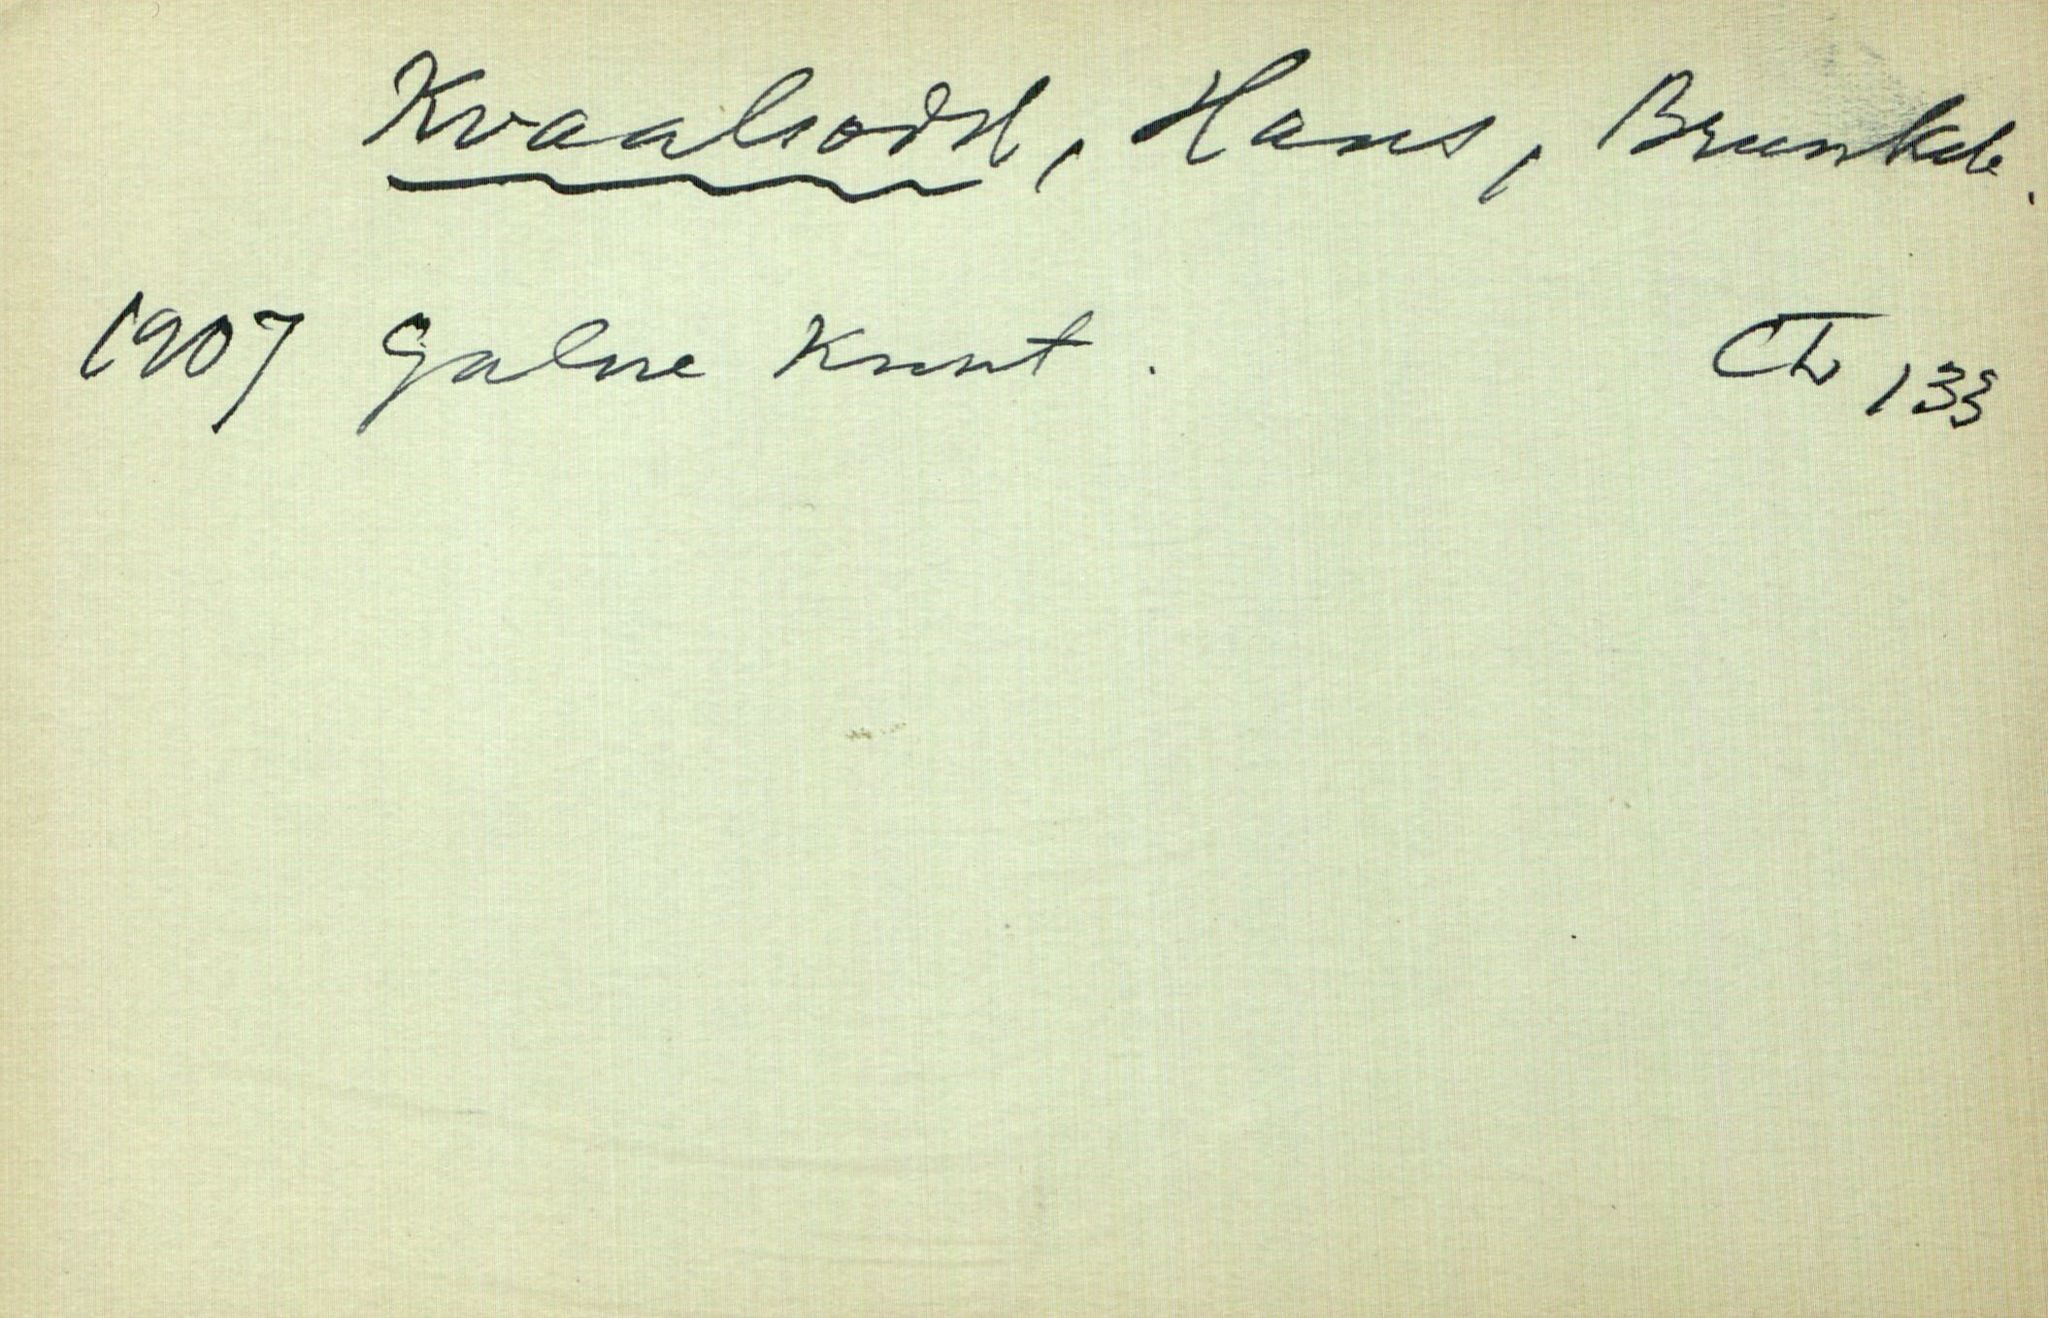 Kvaalsodd, Hans, Brunkeb.
1907 Galne Knut. 133